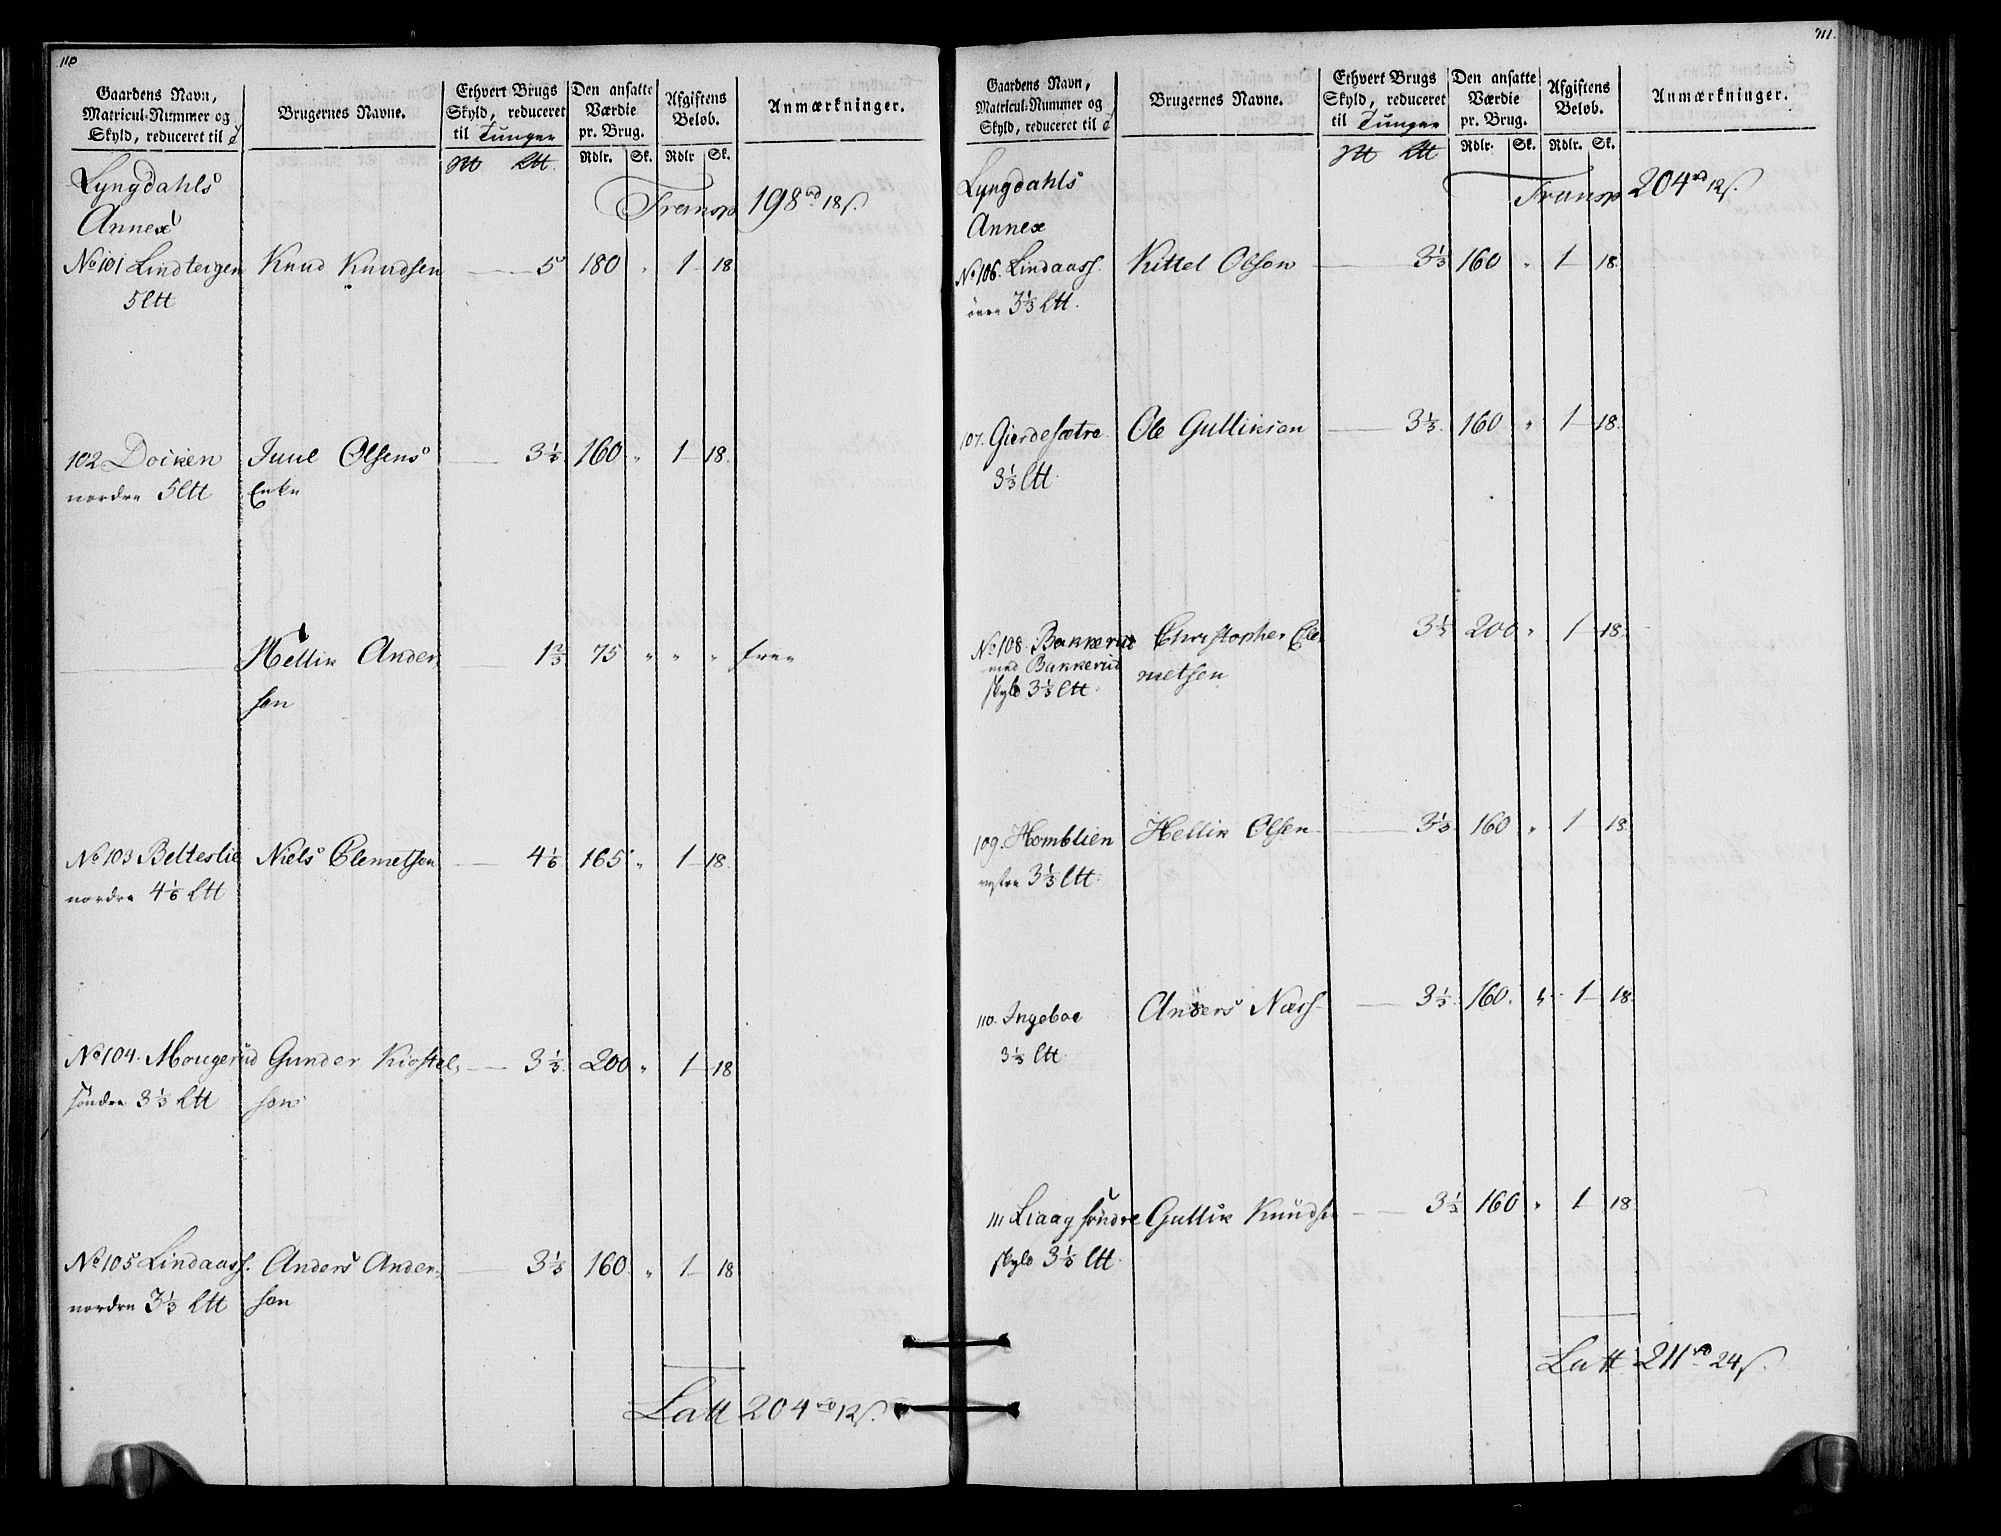 110
Gaardens Navn,
Matricul-Nummer og
Skyld, reduceret til
Brugernes Navne.
Ethvert Brugs
Skyld, reduceret
til Tunger
Den ansatte
Værdie
pr. Brug.
Afgiftens
Beløb.
Anmærkninger.
Rdlr. Sk. Rdlr Sk.
Lyngdahls
Annex
Transp 198 rd 18 s.
No 101 Lindteigen Knud Knudsen 5 180 " 1 18
5 Ltt
102 Docken Juul Olsens 3 1/3 160 " 1 18.
nordre 5 Ltt Enke
Hellik Ander 1 2/3 75 " " " frie
sen
No 103 Belteslie Niels Clemetsen 4 1/6 165 " 1 18.
nordre 4 1/6 Ltt
No 104. Mougerud Gunder Kiostel, 3 1/3. 200 " 1 18
søndre 3 1/3 Ltt sen
No 105 Lindaass. Anders Ander, 3 1/3 160 " 1 18
nordre 3 1/3 Ltt sen
Latt 204 rd 12 s.
111.
Gaardens Navn,
Matricul-Nummer og
Skyld, reduceret til
Brugernes Navne.
Ethvert Brugs
Skyld, reduceret
til Tunger
Den ansatte
Værdie
pr. Brug.
Afgiftens
Beløb.
Anmærkninger.
Rdlr. Sk. Rdlr. Sk.
Lyngdahls
Annex
Transp 204 rd 12 s.
No 106. Lindaass. Kittel Olsen 3 1/3 160 " 1 18.
øvre 3 1/3 Ltt.
107. Gierdesætre Ole Gulliksen 3 1/3. 160 " 1 18.
3 1/3 Ltt.
No 108. Bakkerud Christopher Cle 3 1/3 200 " 1 18.
med Bakkerud metsen
skyld 3 1/3 Ltt.
109. Homblien Hellik Olsen 3 1/3 160 " 1 18.
vestre 3 1/3 Ltt.
110. Ingeboe Anders Narf 3 1/3. 160. " 1 18.
3 1/3 Ltt.
111 Liaag søndre Gullik Knudsen 3 1/3 160 " 1 18
skyld 3 1/3 Ltt.
Latt 211 rd 24 s.